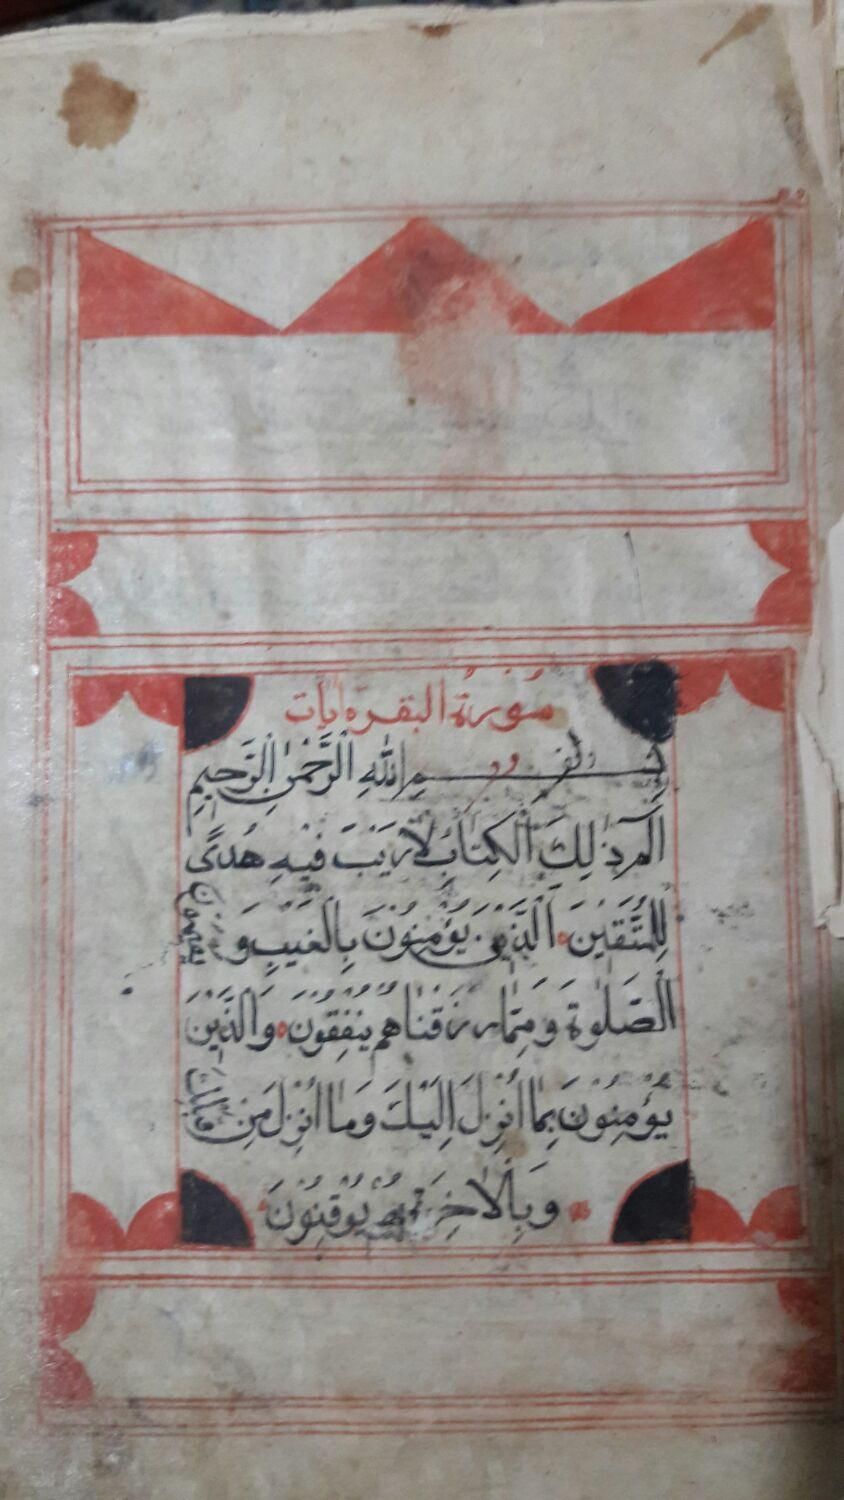 سُورَةُ البقره ايات
بِسْمِ اللهِ الرَّحْمٰنِ الرَّحِيمِ
الٓمٓ ذٰلِكَ الْكِتَابُ لَارَيْبَ فِيهِ هُدًى
لِلْمُتَّقِينَ الَّذِينَ يُؤْمِنُونَ بِالْغَيْبِ وَ يقيمون
الصَّلٰوةَ وَمِمَّا رَزَقْنَاهُمْ يُنْفِقُونَ وَالَّذِينَ
يُؤْمِنُونَ بِمَا اُنْزِلَ اِلَيْكَ وَمَا اُنْزِلَ مِنْ قَبْلِكَ
وَبِالْاٰخِرَةِ هُمْ يُوقِنُونَ